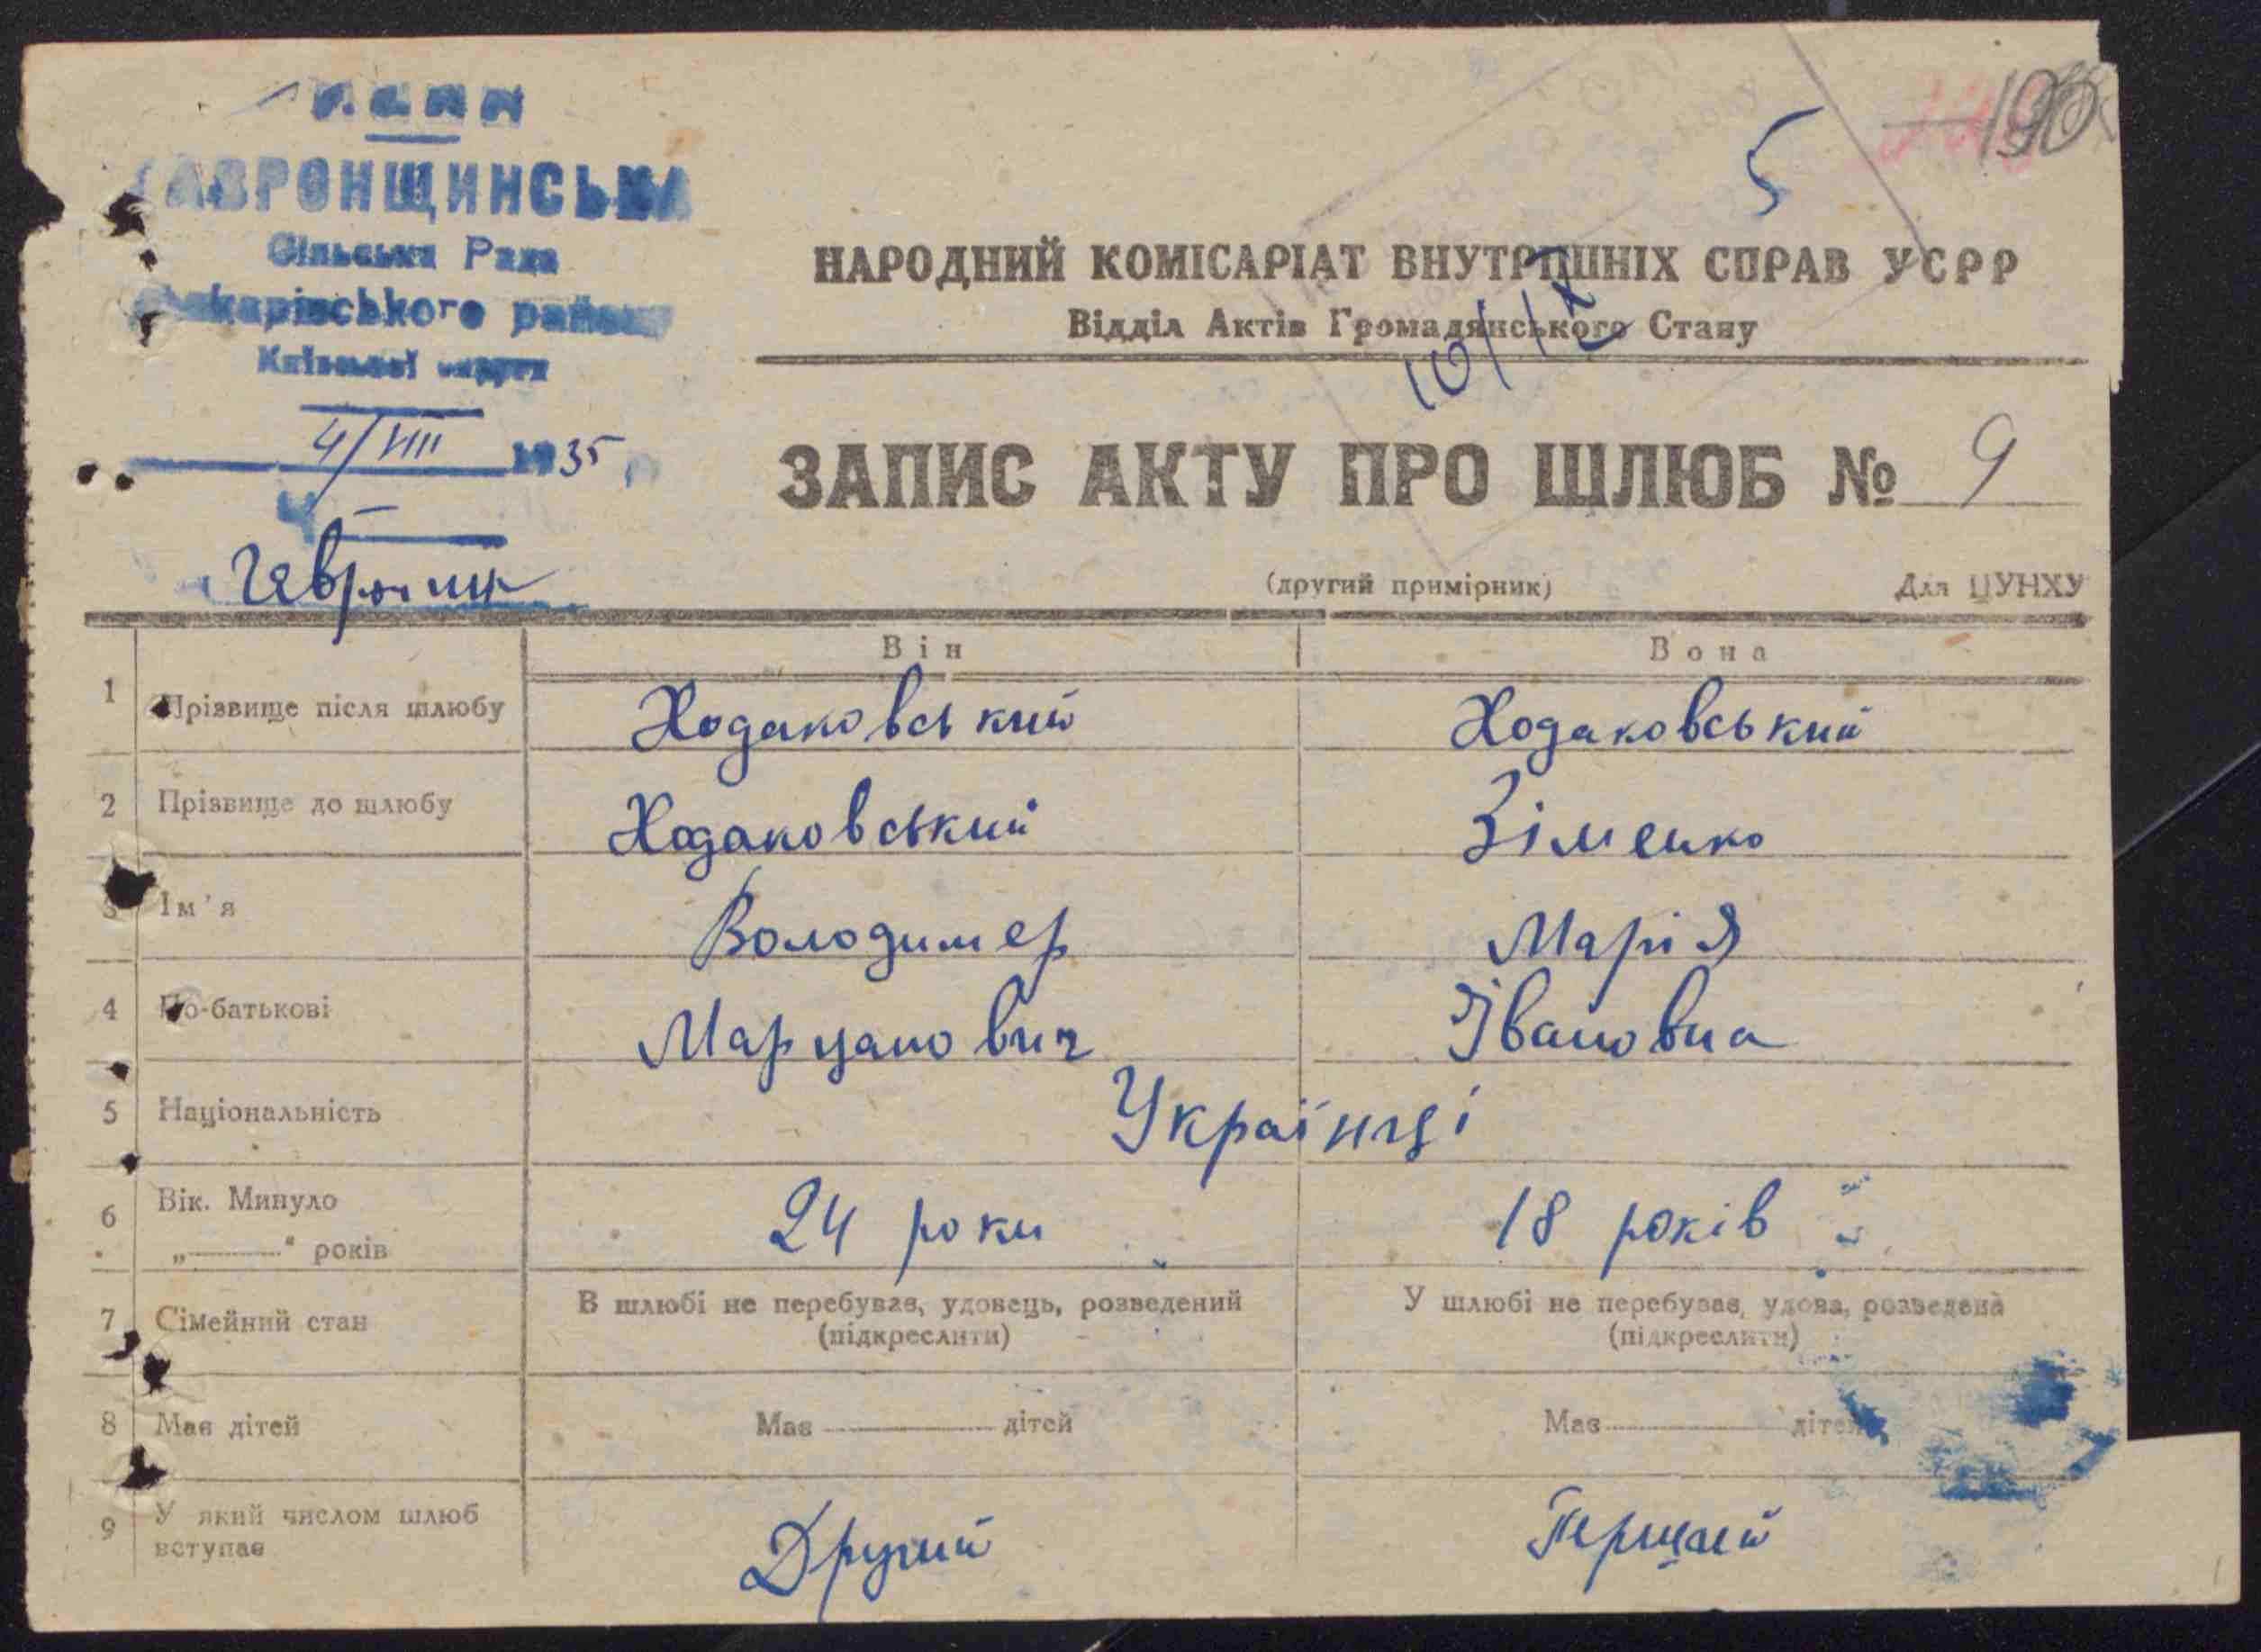 5
190
АВРОНЩИНСЬКА
Сільська Рада
карівського району
Київської округи
НАРОДНИЙ КОМІСАРІАТ ВНУТРІШНІХ СПРАВ УСРР
Відділ Актів Громадянського Стану
10/IX
4/VIII 1935
ЗАПИС АКТУ ПРО ШЛЮБ № 9
(другий примірник) Для ЦУНХУ
Він Вона
1 Прізвище після шлюбу Ходаковський Ходаковський
2 Прізвище до шлюбу Ходаковський Зіменко
3 Ім'я Володимер Марія
4 По-батькові Марцанович Івановна
5 Національність Українці
6 Вік. Минуло 24 роки 18 років
„——“ років
7 Сімейний стан В шлюбі не перебував, удовець, розведений У шлюбі не перебував, удова, розведена
(підкреслити) (підкреслити)
8 Має дітей Має —— дітей Має —— дітей
9 У який числом шлюб вступає Другий Перший